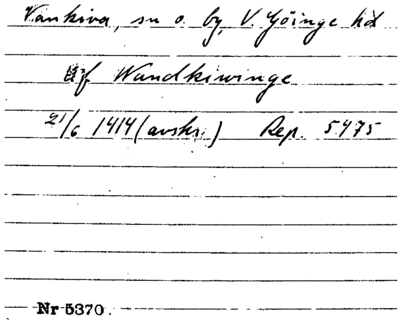 Vankiva, sn o. by, V. Göinge hd
af Wandkiwinge
21/6 1414 (avskr.) Rep. 5475
Nr 5370.